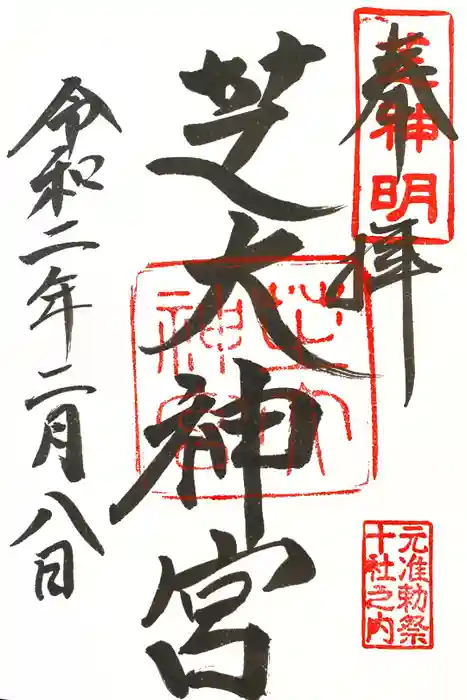 奉拝
芝神明
芝大神宮
芝大神宮
元准勅祭
十社之内
令和二年二月八日